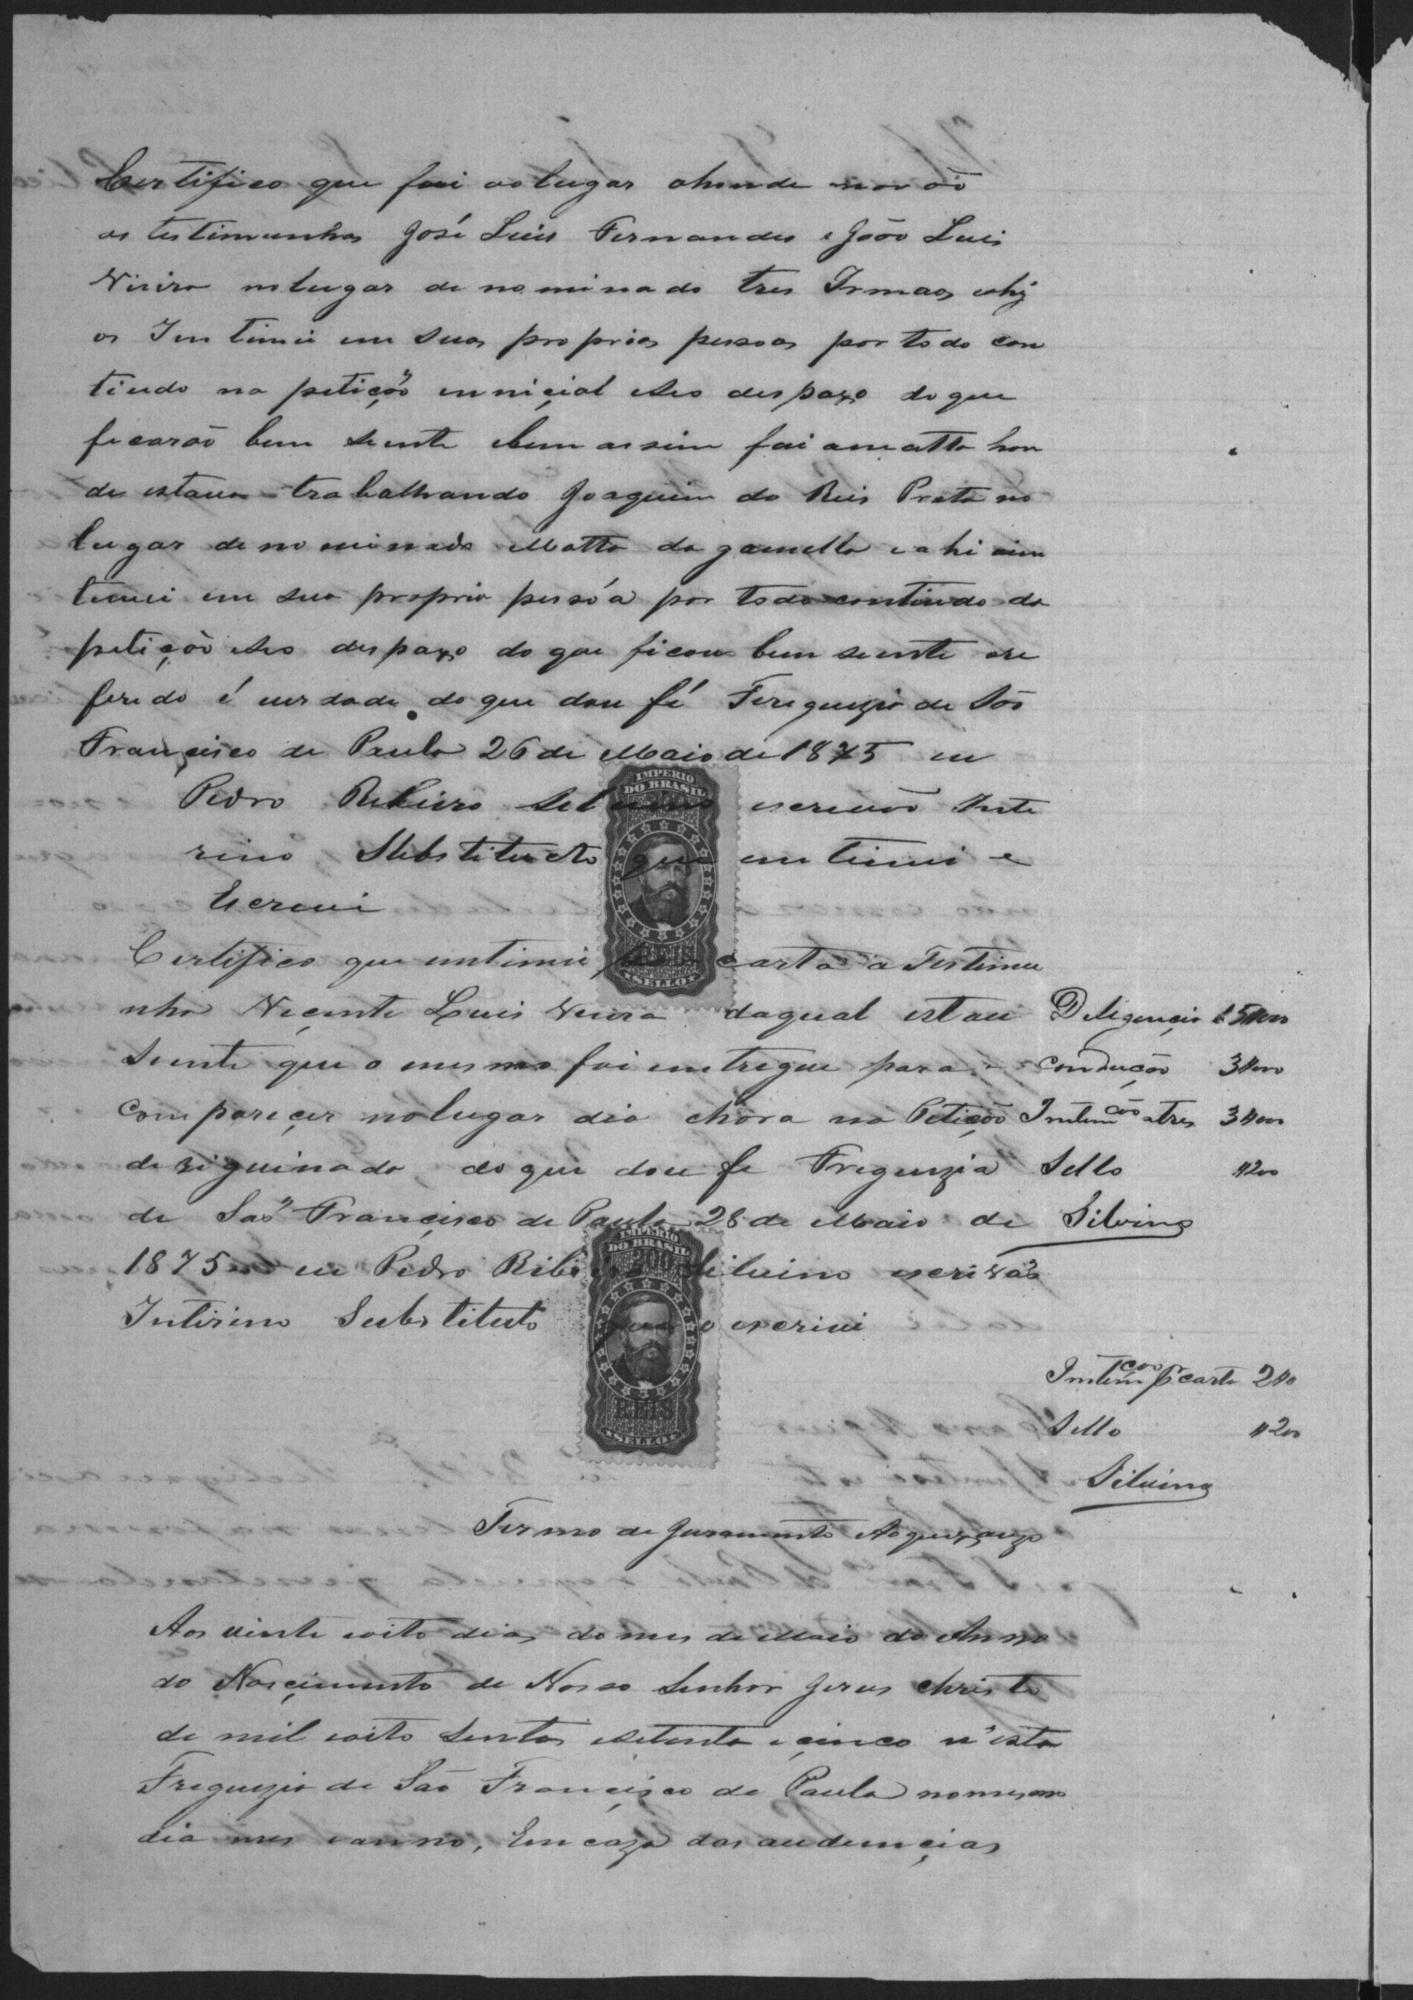 Certifico que fui ao lugar ahonde morão
as testimunhas José Luis Fernandes e João Luis
Vieira no lugar denominado tres Irmaos ehy
os Intimei em suas proprias pessoas por todo con
tiudo na petiçõ inniçial eseo despaxo do que
ficarão bem siente ebem assim fui ao matto hon
de estava trabalhando Joaquim do Reis Preto no
lugar denominado Matto da gamella e ahi oin
timei em sua propria pesóa por todo contiudo da
petiçõ eseo despaxo do que ficou bem siente ore
ferido é verdade do que dou fé Freguezia de São
Françisco de Paula 26 de Maio de 1875 eu
Pedro Ribeiro Silvino escrivão Inte
rino Substituto que intimei e
Escrevi
Certifico que intimei por carta a Testimu
nha Viçente Luis Vieira daqual estou
siente que o mesmo foi entregue para
compareçer no lugar dia ehora na Petiçõ
desiguinada, do que dou fe Freguezia
de São Françisco de Paula 28 de Maio de
1875 eu Pedro Ribeiro Silvino escrivão
Intirino Substituto que o escrivi
Deligençia 15000
Condução 3000
Intimçoo atres 3000
Sello 200
Silvino
Intimçoo pr carta 2
Sello 200
Silvino
IMPERIO
DO BRASIL
REIS
SELLO
IMPERIO
DO BRASIL
200
REIS
SELLO
Termo de Juramento
Aos vinte eoito dias do mes de Maio do Anno
do Nasçimento de Nosso Senhor Jesus Christo
de mil eoito sentos esetenta e çinco n'esta
Freguezia de São Françisco de Paula no mesmo
dia mes eanno, Em caza das audiençias